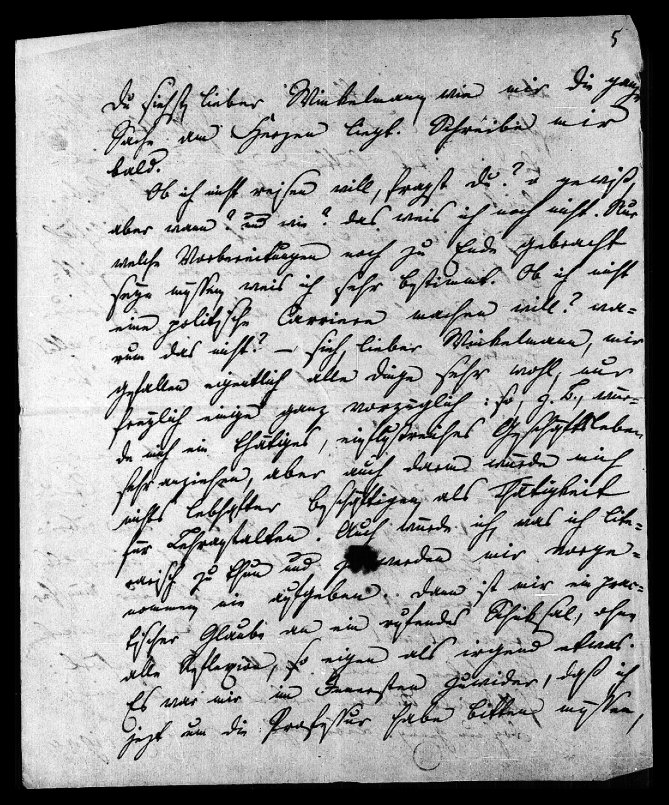 5
Du siehst, lieber Winkelmann, wie mir die ganze
Sache am Herzen liegt. Schreibe mir
bald.
Ob ich nicht reisen will, fragst du? o gewiß,
aber wann? und wie? das weis ich noch nicht. Nur
welche Vorbereitungen noch zu Ende gebracht
seyn müssen weis ich sehr bestimmt. Ob ich nicht
eine politische Carriere machen will? wa-
rum das nicht? — sieh, lieber Winkelmann, mir
gefallen eigentlich alle Dinge sehr wohl, nur
freylich einige ganz vorzüglich: so, z. B., wür-
de mich ein thätiges, einflußreiches Geschäftsleben
sehr anziehen, aber auch darin würde mich
nichts lebhafter beschäftigen als Thätigkeit
für Lehranstalten. Auch würde ich, was ich lite-
rarisch zu thun und zu werden mir vorge-
nommen nie aufgeben. Dann ist mir ein prac-
tischer Glaube an ein rufendes Schiksal, ohne
alle Reflexion, so eigen als irgend etwas.
Es war mir im Innersten zuwider, daß ich
jezt um die Professur habe bitten müssen,